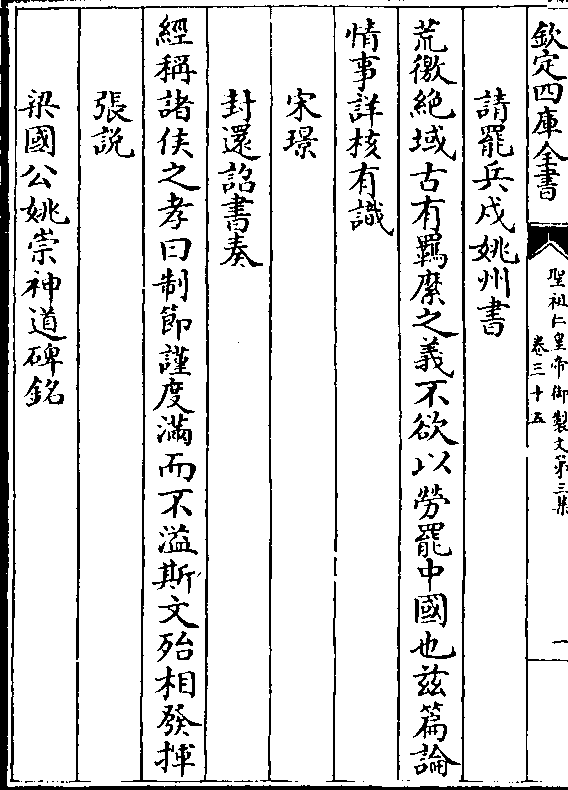 欽定四庫全書
聖祖仁皇帝御製文第三集
卷三十五
一
請罷兵戍姚州書
荒徼絶域古有羈縻之義不欲以勞罷中國也兹篇論
情事詳核有識
宋璟
封還詔書奏
經稱諸侯之孝曰制節謹度滿而不溢斯文殆相發揮
張説
梁國公姚崇神道碑銘